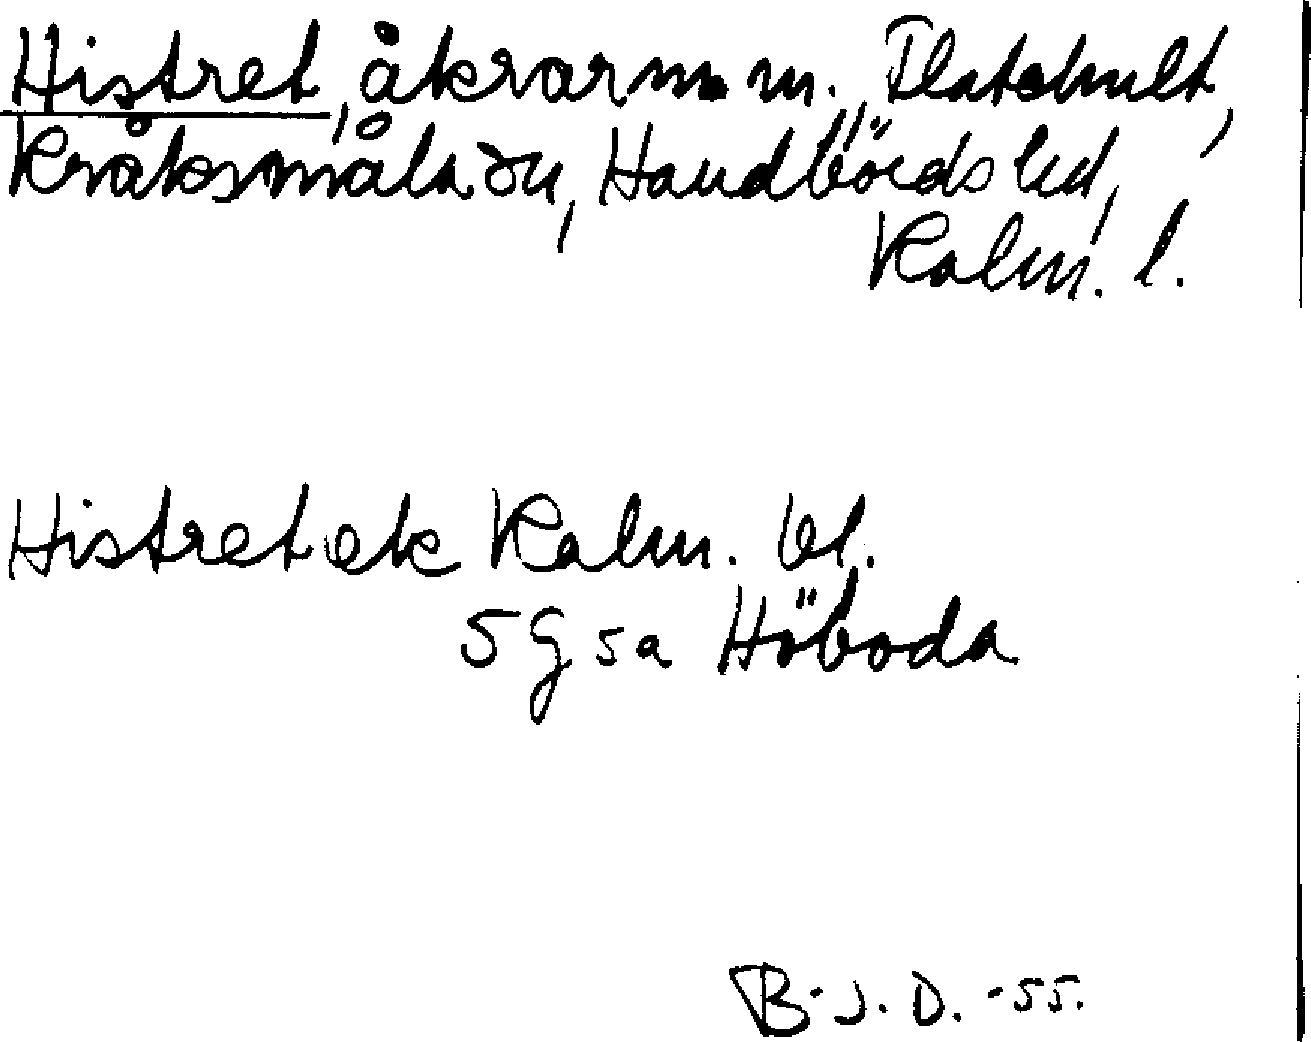 Histret, åkrar m. m., Flatehult,
Kråksmåla sn, Handbörds hd,
Kalm. l.
Histret ek Kalm. bl.
5 G 5a Höboda
B. J. D. -55.